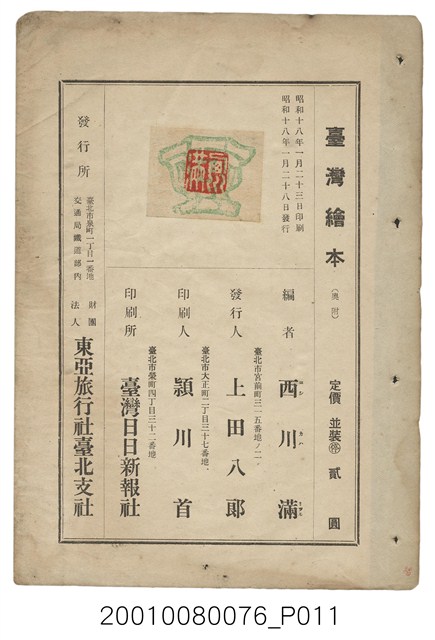 臺灣繪本
定價 並裝 貳圓
昭和十八年一月二十三日印刷
昭和十八年一月二十八日發行
編者 西川滿
臺北市宮前町三一五番地ノ二
發行人 上田八郎
臺北市大正町二丁目三十七番地
印刷人 潁川首
臺北市榮町四丁目三十二番地
印刷所 臺灣日日新報社
發行所
臺北市泉町一丁目一番地
交通局鐵道部內
財團法人 東亞旅行社臺北支社
20010080076_P011